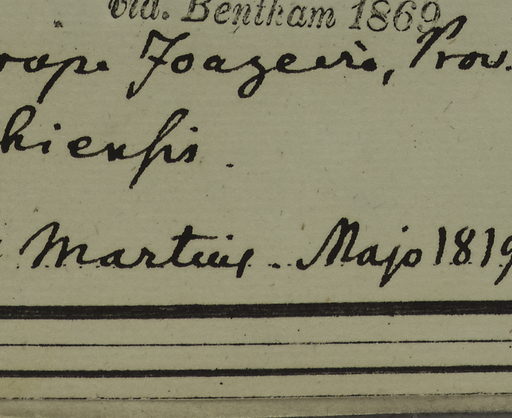 vid. Bentham 1869
prope Joazeiro, Prov.
hiensis.
Martius. Majo 1819